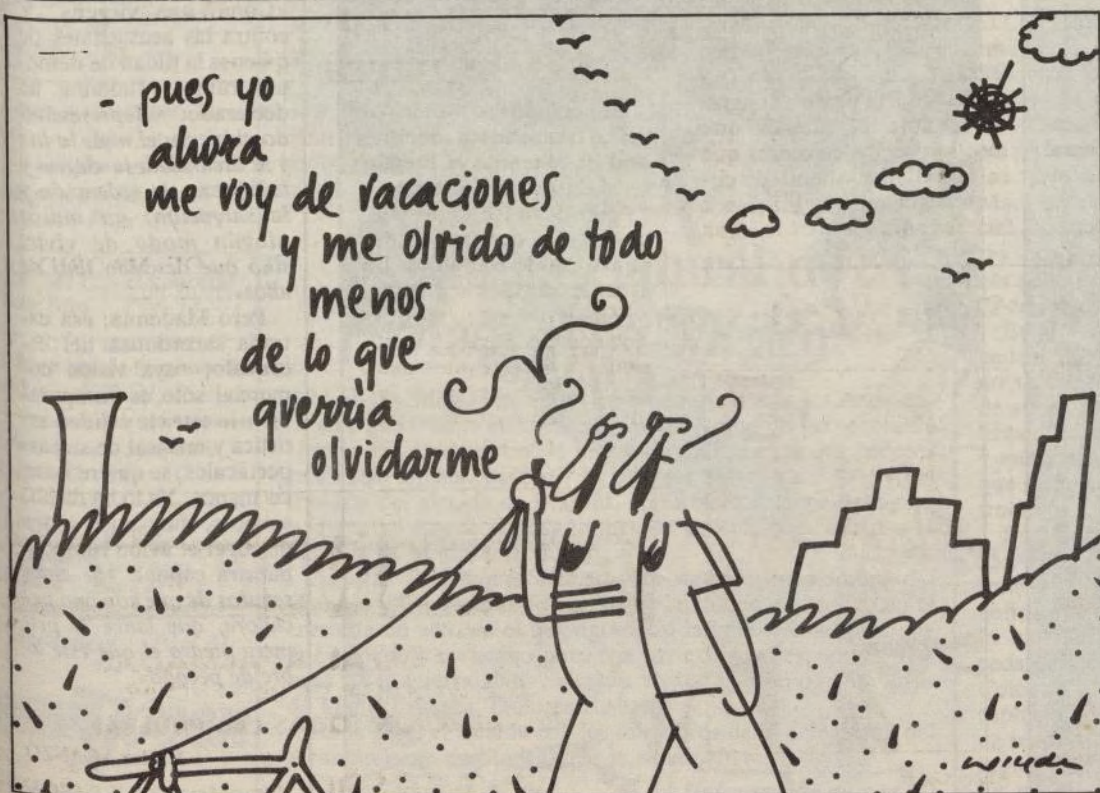 - pues yo
ahora
me voy de vacaciones
y me olvido de todo
menos
de lo que
querría
olvidarme